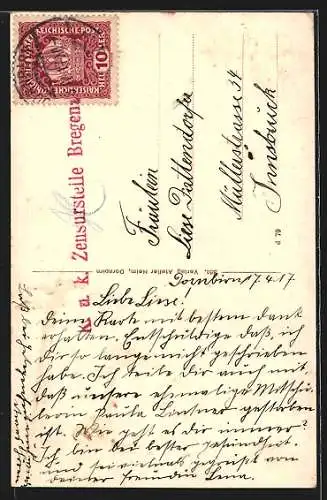 KAISERLICHE KÖN. ÖSTERREICHISCHE POST
10 HELLER
K. u. k. Zensurstelle Bregenz
Fräulein
Liese Dattendorfer
Müllerstrasse 34
Innsbruck
d 79
356, Verlag Atelier Heim, Dornbirn
Dornbirn 17.4.17
Liebe Liese!
Deine Karte mit bestem dank
erhalten. Entschuldige daß, ich
Dir so lange nicht geschrieben
habe. Ich teile Dir auch mit,
daß unsere ehemalige Mitschü-
lerin Paula Lantner gestorben
ist. Wie geht es dir immer?
Ich bin bei bester gesundheit.
und sei vielmals gegrüßt von
deiner freundin Lina.